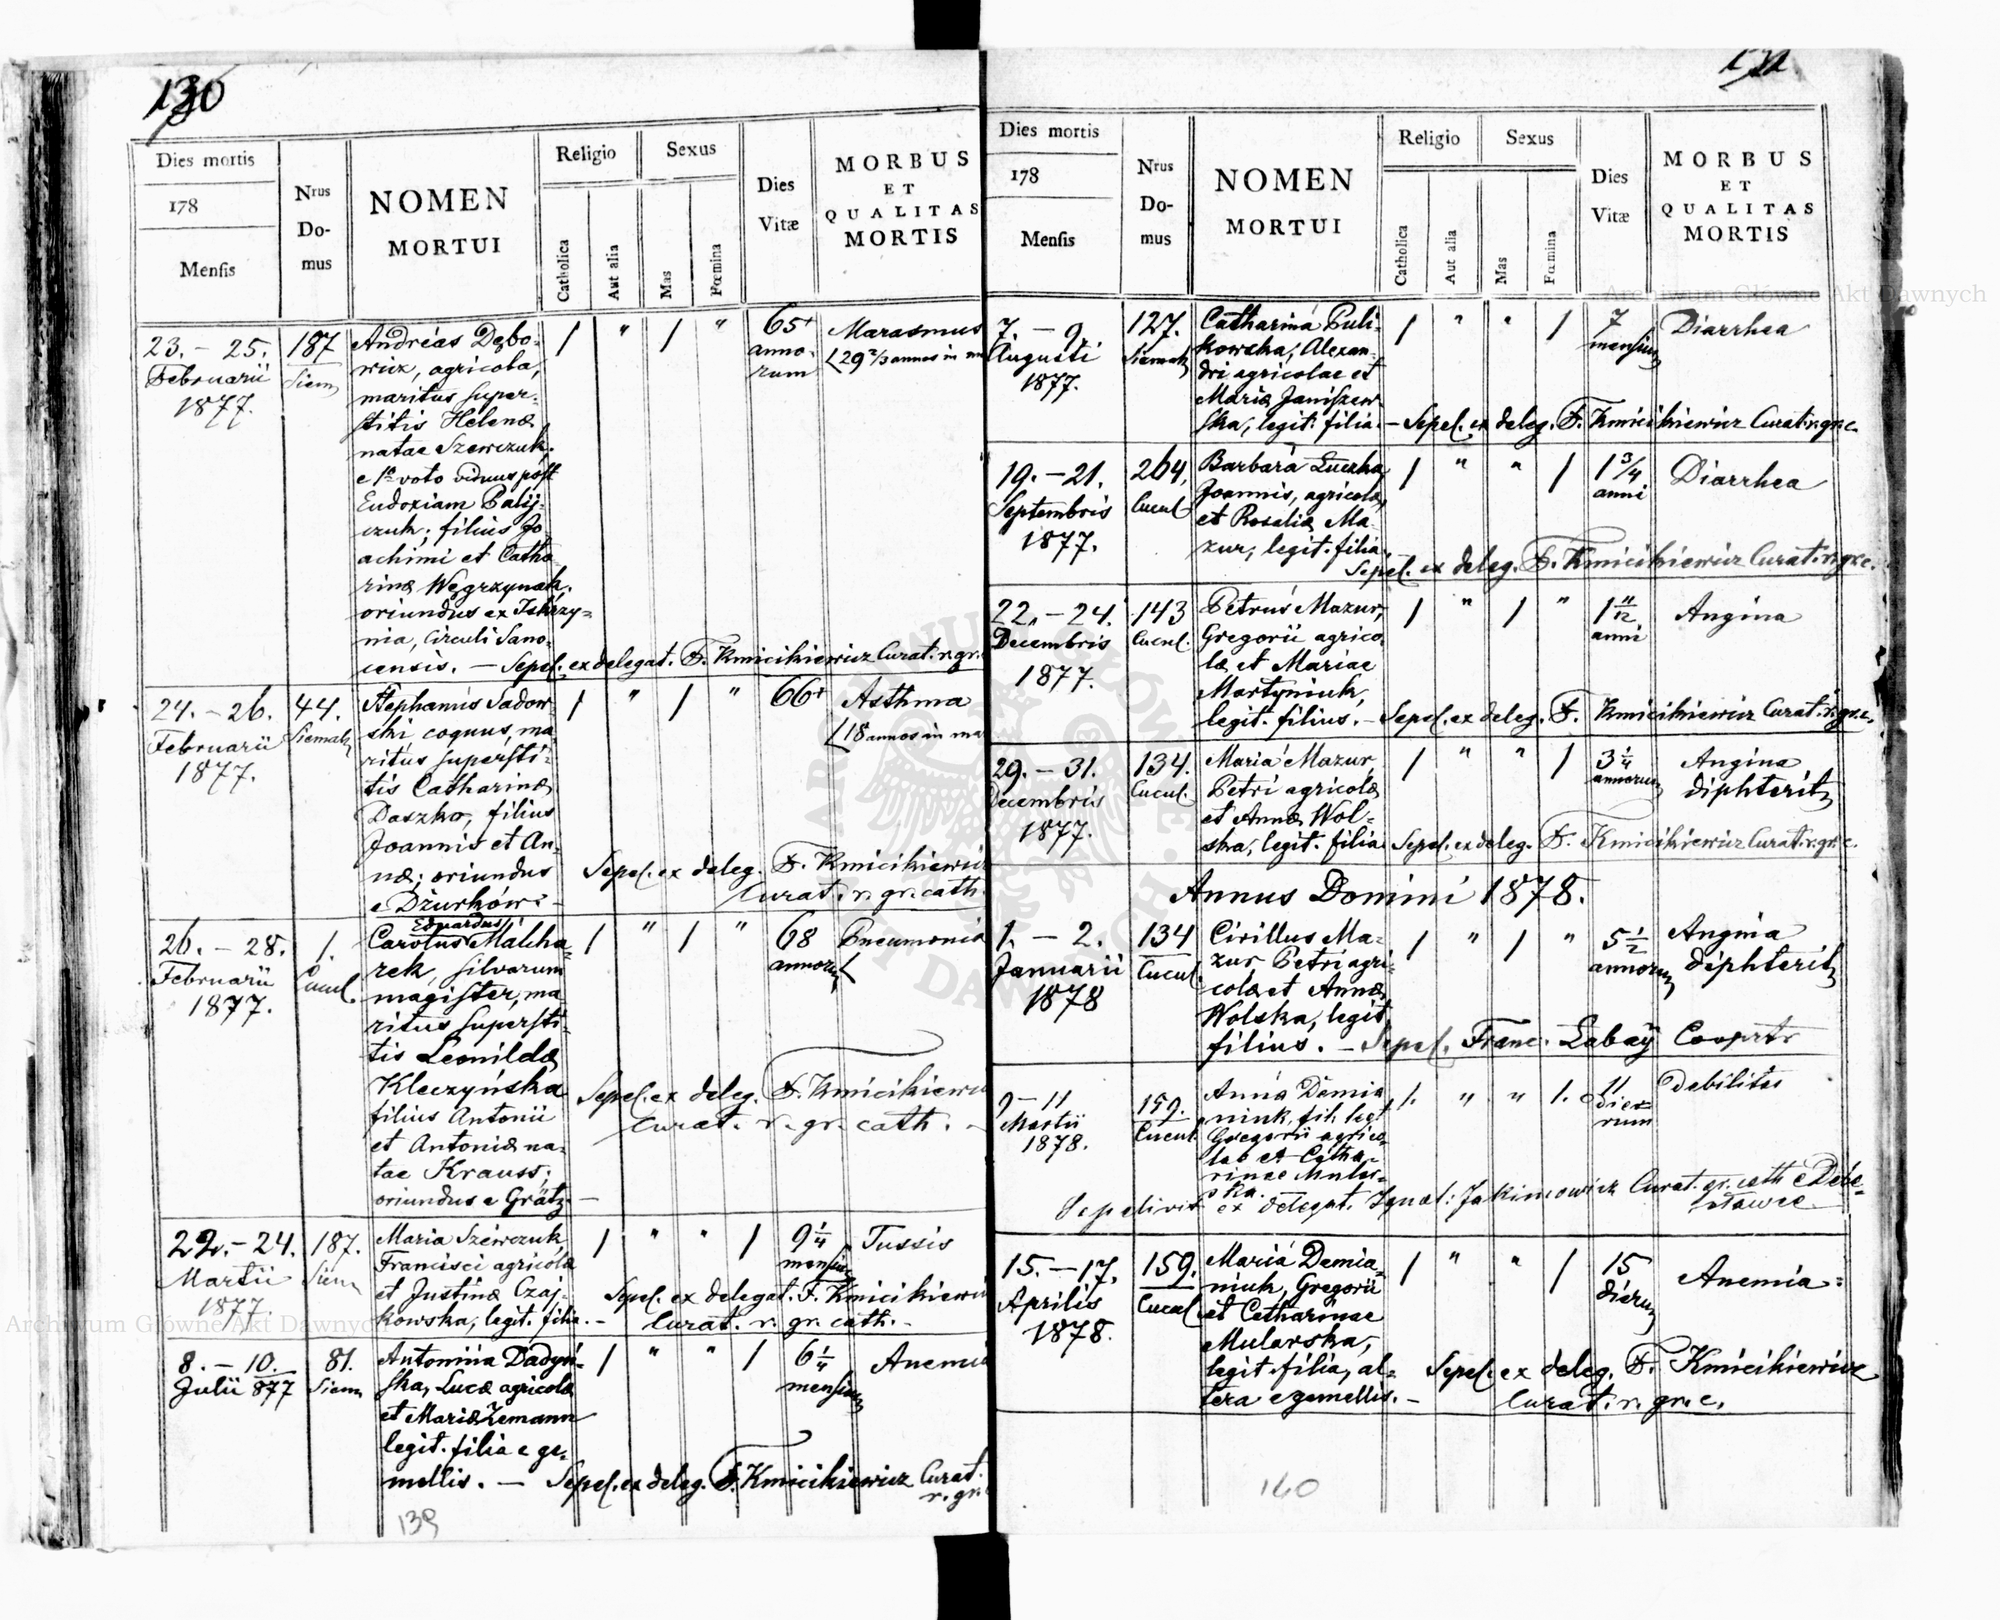 130
Dies mortis
178
Menſis
Nrus
Do-
mus
NOMEN
MORTUI
Religio
Catholica
Aut alia
Sexus
Mas
Fœmina
Dies
Vitæ
MORBUS
ET
QUALITAS
MORTIS
23. – 25.
Februarii
1877.
187
Siem
Andreas Dębo-
wicz, agricola,
maritus super-
stitis Helenæ
natae Szewczuk,
e 1º voto viduus post
Eudoxiam Palij-
czuk; filius Jo-
achimi et Catha-
rinæ Węgrzynak,
oriundus ex Iskrzy=
nia, circuli Sano-
censis. – Sepel. ex delegat. F. Kmicikiewicz Curat. r. gr.
/ " / "
65+
anno-
rum
Marasmus
29 2/3 annos in m
24. – 26.
Februarii
1877.
44.
Siemak
Stephanus Sadow
ski coquus, ma-
ritus supersti-
tis Catharinæ
Daszko, filius
Joannis et An-
næ; oriundus
e Dżurków: –
/ " / "
66+
Asthma
18 annos in ma
Sepel. ex deleg. F. Kmicikiewicz
Curat. r. gr. cath.
26. – 28.
Februarii
1877.
1.
Cucul.
Eduardus
Carolus Malcha-
rek, silvarum
magister, ma-
ritus supersti-
tis Leonildæ
Kleczyńska
filius Antonii
et Antoniæ na-
tae Krauss;
oriundus e Grätz. –
/ " / "
68
annorum
Pneumonia
Sepel. ex deleg. F. Kmicikiewicz
Curat. r. gr. cath. –
22. – 24.
Martii
1877.
187.
Siem
Maria Szewczuk
Francisci agricolæ
et Justinæ Czaj-
kowska, legit. filia. –
/ " " /
9 1/4
mensium
Tussis
Sepel. ex delegat. F. Kmicikiewicz
Curat. r. gr. cath. –
8. – 10.
Julii 877
81.
Siem
Antonina Dadyń-
ska, Lucæ agricolæ
et Mariæ Zemann
legit. filia e ge-
mellis. – Sepel. ex deleg. F. Kmicikiewicz Curat.
r. gr.
/ " " /
6 1/4
mensium
Anemia
139
131
Dies mortis
178
Menſis
Nrus
Do-
mus
NOMEN
MORTUI
Religio
Catholica
Aut alia
Sexus
Mas
Fœmina
Dies
Vitæ
MORBUS
ET
QUALITAS
MORTIS
7. – 9.
Augusti
1877.
127.
Siemak
Catharina Puli-
kowska, Alexan-
dri agricolae et
Mariæ Janiszew
ska, legit. filia. – Sepel. ex deleg. F. Kmicikiewicz Curat. r. gr. c.
/ " " /
7
mensium
Diarrhea
19. – 21.
Septembris
1877.
264.
Cucul
Barbara Łuczka
Joannis, agricolæ,
et Rosaliæ Ma-
zur, legit. filia. –
Sepel. ex deleg. F. Kmicikiewicz Curat. r. gr. c.
/ " " /
1 3/4
anni
Diarrhea
22. – 24.
Decembris
1877.
143
Cucul.
Petrus Mazur,
Gregorii agrico-
læ et Mariae
Martyniuk,
legit. filius. – Sepel. ex deleg. F. Kmicikiewicz Curat. r. gr. c.
/ " / "
1 11/12
anni
Angina
29. – 31.
Decembris
1877.
134.
Cucul.
Maria Mazur
Petri agricolæ
et Annæ Wol-
ska, legit. filia. Sepel. ex deleg. F. Kmicikiewicz Curat. r. gr. c.
/ " " /
3 1/4
annorum
Angina
diphterit
Annus Domini 1878.
1. – 2.
Januarii
1878
134
Cucul.
Cirillus Ma-
zur Petri agri-
colæ et Annæ
Wolska, legit.
filius. – Sepel. Franc. Łabaÿ Cooprtr
/ " / "
5 1/2
annorum
Angina
diphterit
9 – 11
Martii
1878.
159.
Cucul
Anna Demia
niuk, fil. legt
Gregorii agrico-
lae et Catha-
rinae Mular-
ska.
/. " " /.
11
dier=
rum
Debilitas
Sepelivit ex delegat. Ignat: Jakimowicz Curat. gr. cath e Debe-
sławce
15. – 17.
Aprilis
1878.
159.
Cucul
Maria Demia-
niuk, Gregorii
et Catharinae
Mularska,
legit. filia, al-
tera e gemellis. –
/ " " /
15
dierum
Anemia:
Sepel. ex deleg. F. Kmicikiewicz
Curat. r. gr. c.
140
Archiwum Główne Akt Dawnych
Archiwum Główne Akt Dawnych
ARCHIWUM GŁÓWNE AKT DAWNYCH